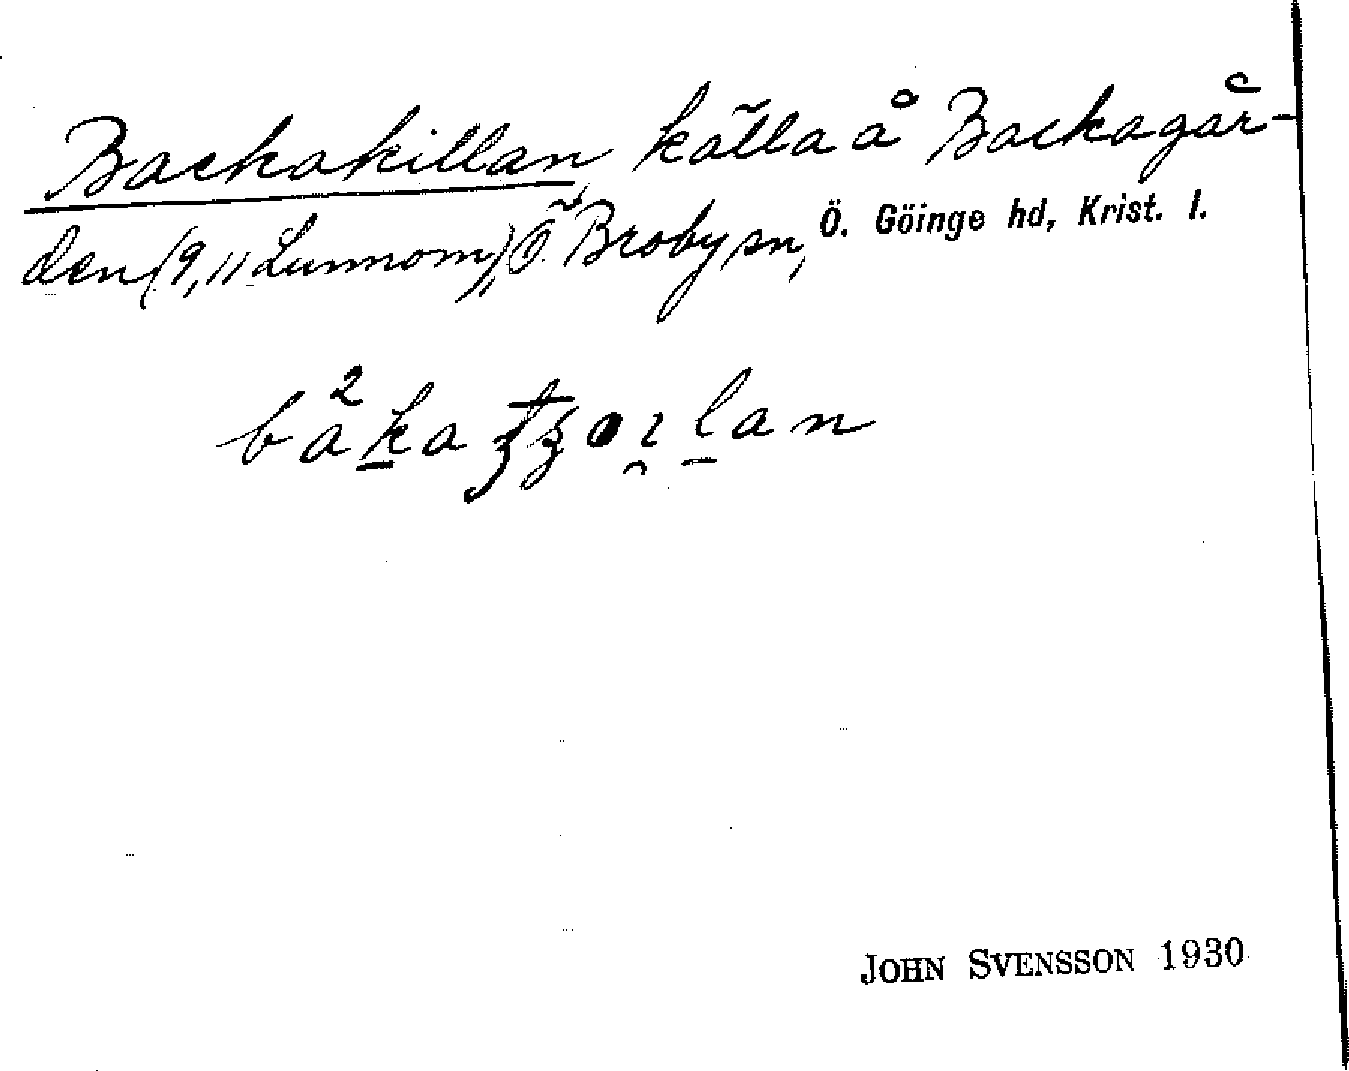 Backakillan, källa å Backagår-
den (9, 11 Lunnom), Ö. Broby sn, Ö. Göinge hd, Krist. l.
JOHN SVENSSON 1930